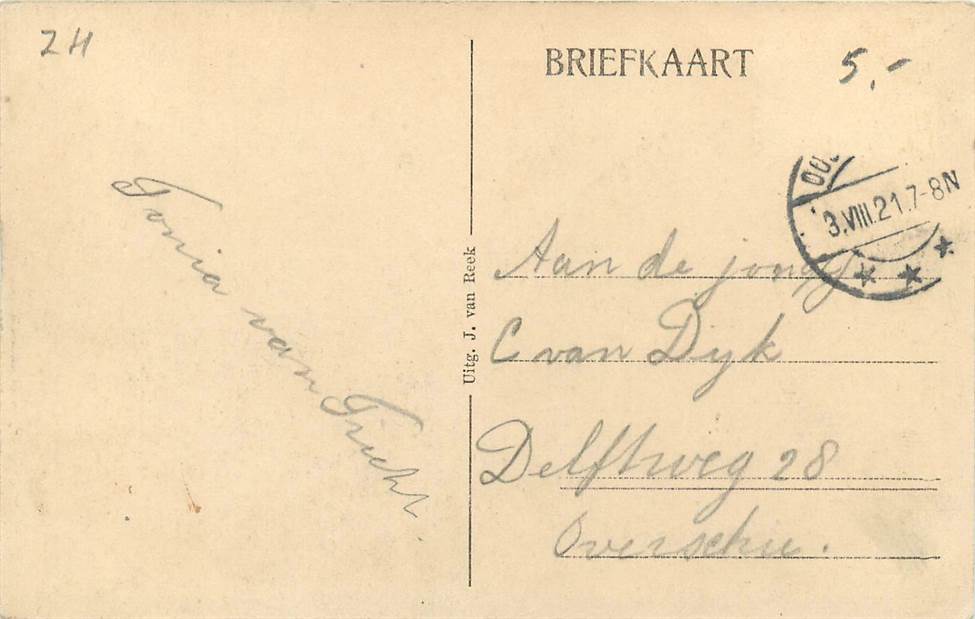 ZH
BRIEFKAART
5,-
3.VIII.21.7-8N
Tonia van Tricht.
Uitg. J. van Reek
Aan de
C van Dyk
Delftweg 28
Overschie.